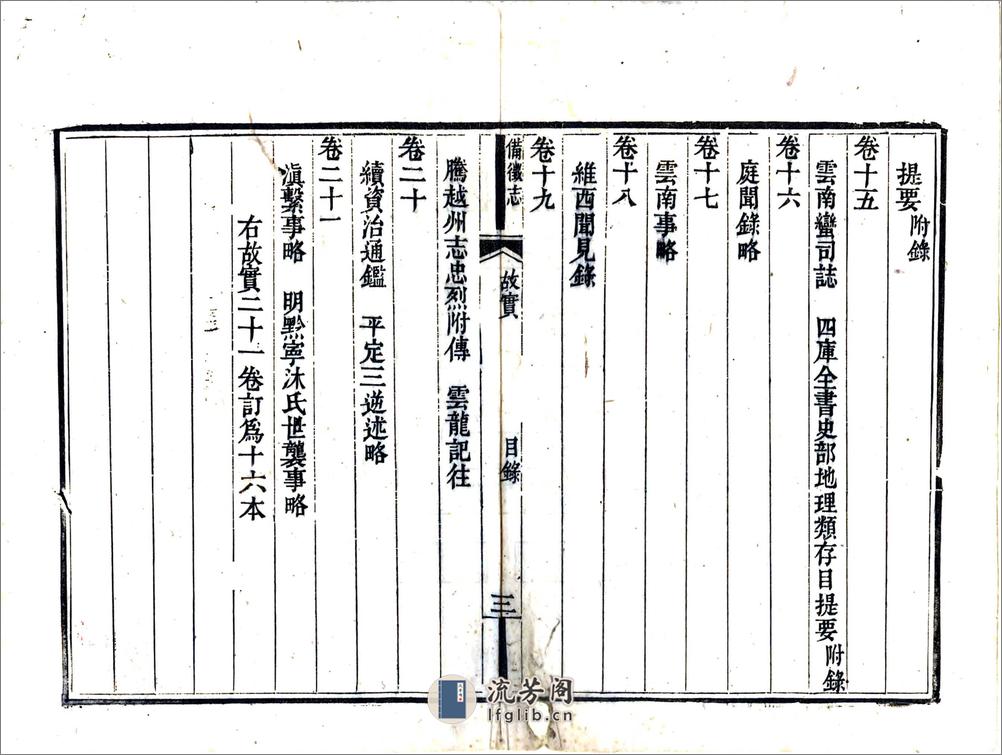 提要附錄
卷十五
雲南蠻司誌　四庫全書史部地理類存目提要附錄
卷十六
庭聞錄略
卷十七
雲南事略
卷十八
維西聞見錄
卷十九
備徵志　故實　目錄　三
騰越州志忠烈附傳　雲龍記往
卷二十
續資治通鑑　平定三逆述略
卷二十一
滇繫事略　明黔寧沐氏世襲事略
右故實二十一卷訂爲十六本
流芳阁
lfglib.cn